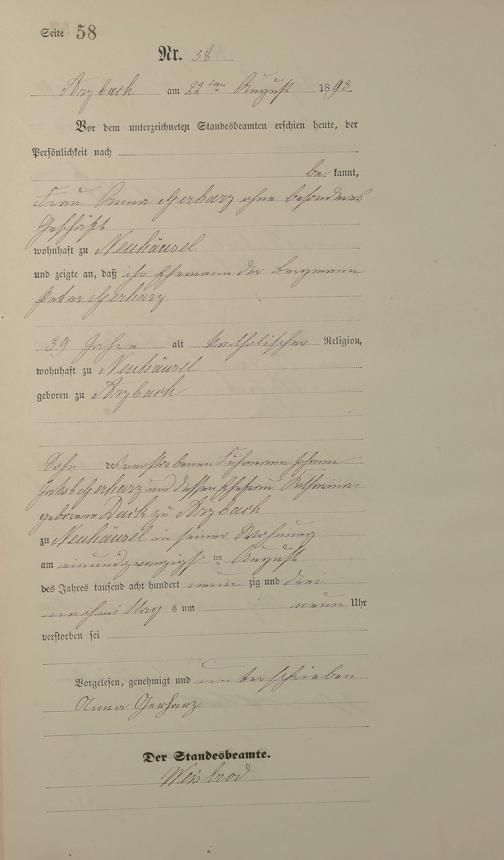 Seite 58
Nr. 58
Arzbach am 22ten August 1893.
Vor dem unterzeichneten Standesbeamten erschien heute, der
Persönlichkeit nach
be kannt,
Frau Anna Gerharz ohne besonderes
Geschäft
wohnhaft zu Neuhäusel
und zeigte an, daß ihr Ehemann der Bergmann
Peter Gerharz
39 Jahre alt katholischer Religion,
wohnhaft zu Neuhäusel
geboren zu Arzbach
Sohn des verstorbenen
Jakob Gerharz und dessen Ehefrau
geborene zu Arzbach
zu Neuhäusel in seiner Wohnung
am einundzwanzigsten August
des Jahres tausend acht hundert neun zig und drei
nachmittags um neun Uhr
verstorben sei
Vorgelesen, genehmigt und unterschrieben
Anna Gerharz
Der Standesbeamte.
Weisbrod